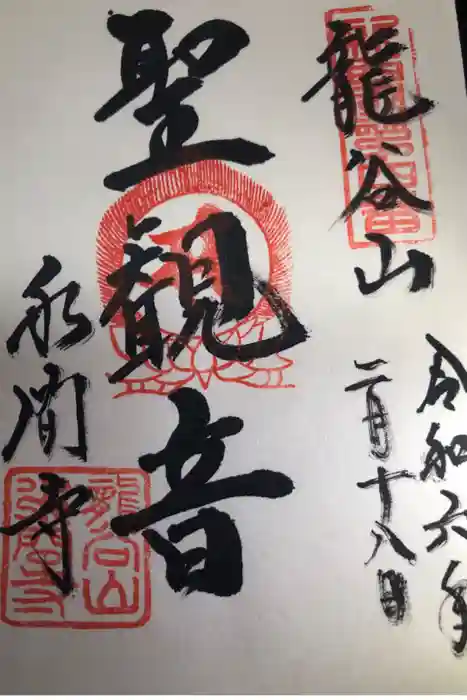 令和六年
二月十八日
龍谷山
聖観音
永間寺
龍谷山